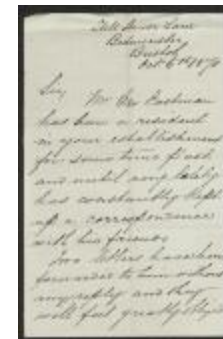 Hill House Lane
Bedminster
Bristol
Oct 6th
Sir
Mr Geo Eastman
has been a resident
in your establishment
for some time past,
and until very lately
has constantly kept
up a correspondence
with his friends
Two letters have been
to him without
any reply and they
will feel greatly